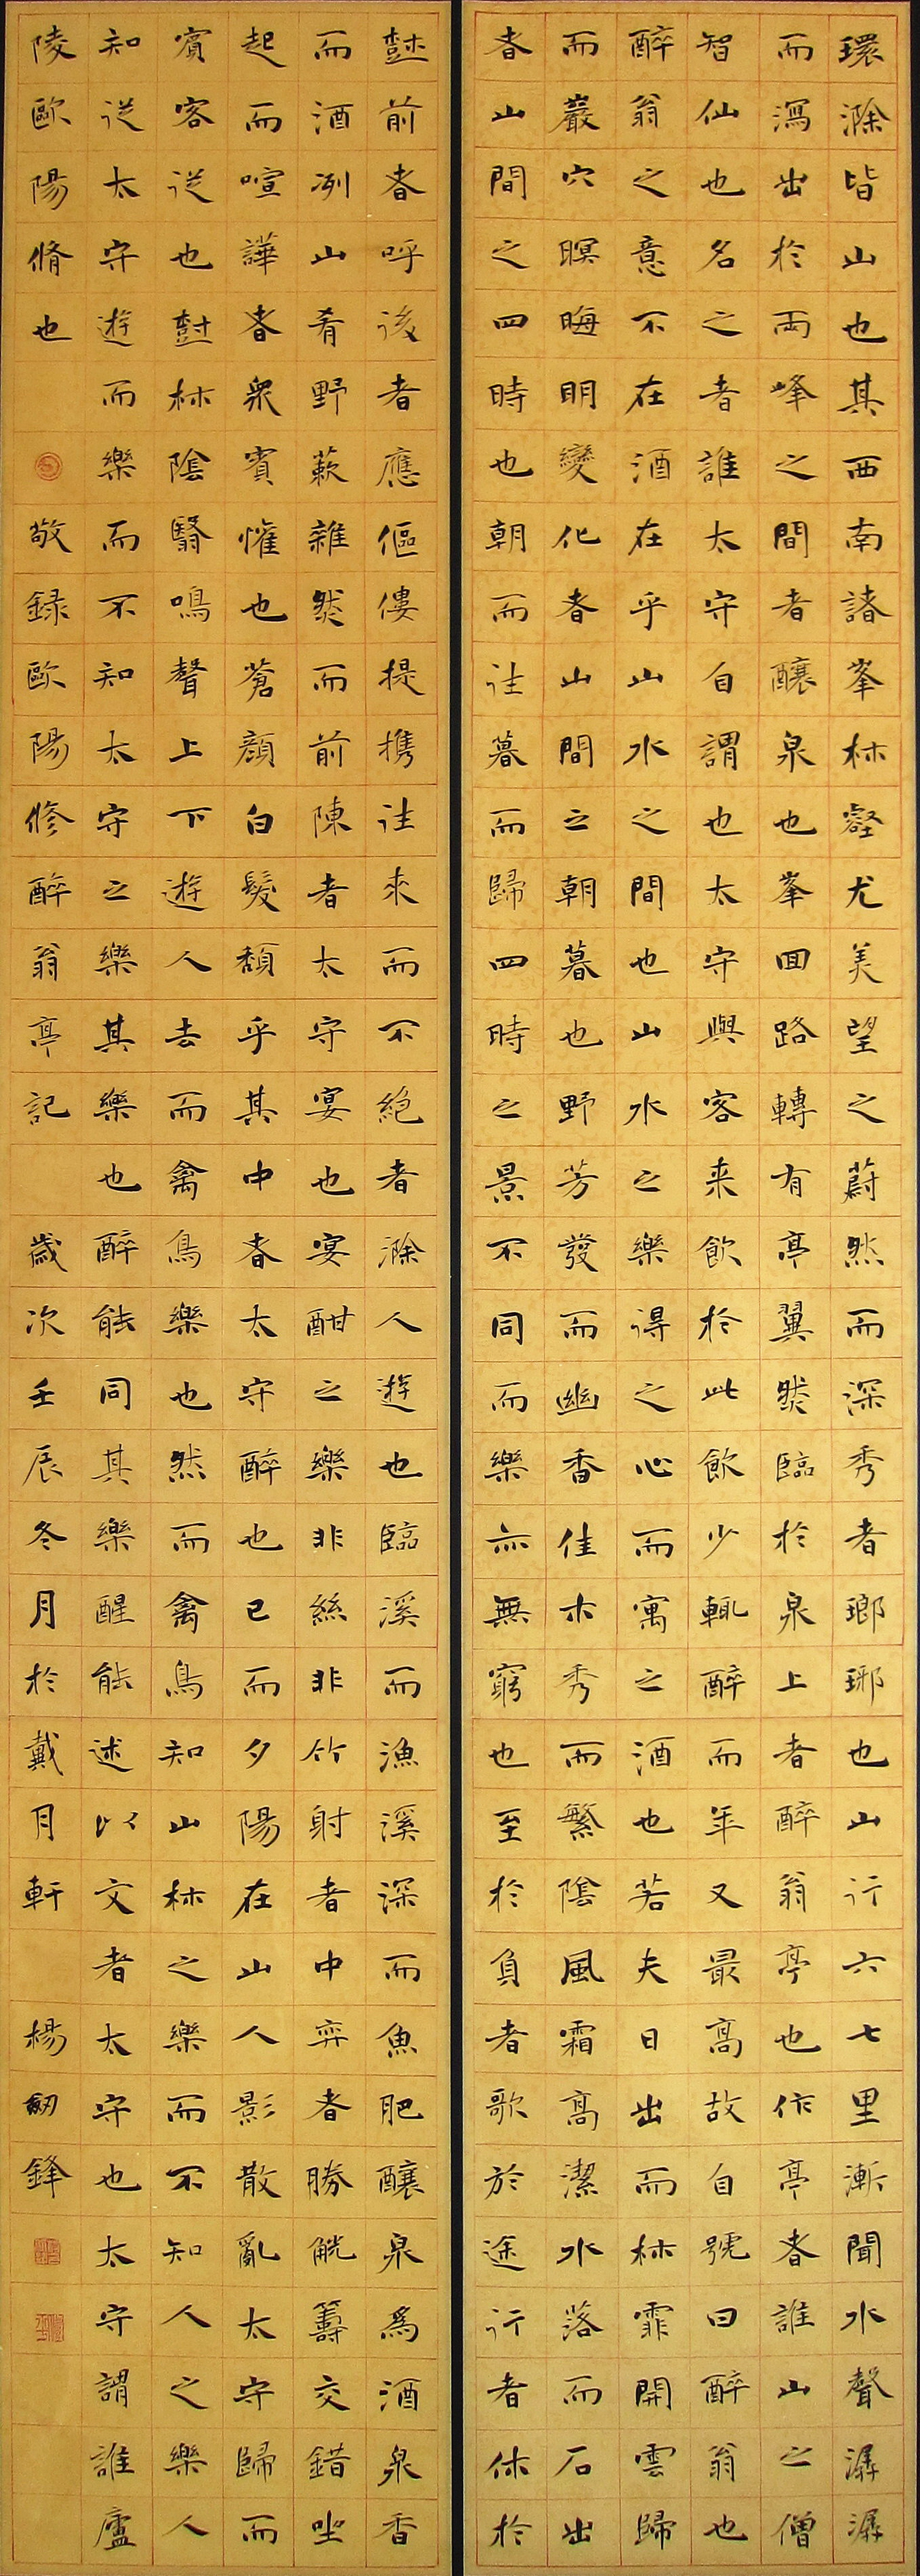 環滁皆山也其西南諸峯林壑尤美望之蔚然而深秀者瑯琊也山行六七里漸聞水聲潺潺
而瀉出於兩峰之間者釀泉也峯回路轉有亭翼然臨於泉上者醉翁亭也作亭者誰山之僧
智仙也名之者誰太守自謂也太守與客来飲於此飲少輒醉而年又最高故自號曰醉翁也
醉翁之意不在酒在乎山水之間也山水之樂得之心而寓之酒也若夫日出而林霏開雲歸
而巖穴暝晦明變化者山間之朝暮也野芳發而幽香佳木秀而繁陰風霜高潔水落而石出
者山間之四時也朝而往暮而歸四時之景不同而樂亦無窮也至於負者歌於途行者休於
樹前者呼後者應傴僂提携往來而不絕者滁人遊也臨溪而漁溪深而魚肥釀泉為酒泉香
而酒冽山肴野蔌雜然而前陳者太守宴也宴酣之樂非絲非竹射者中弈者勝觥籌交錯坐
起而喧譁者衆賓懽也蒼顏白髮頹乎其中者太守醉也已而夕陽在山人影散亂太守歸而
賓客從也樹林陰翳鳴聲上下遊人去而禽鳥樂也然而禽鳥知山林之樂而不知人之樂人
知從太守遊而樂而不知太守之樂其樂也醉能同其樂醒能述以文者太守也太守謂誰廬
陵歐陽脩也 敬録歐陽修醉翁亭記 歲次壬辰冬月於戴月軒 楊劍鋒